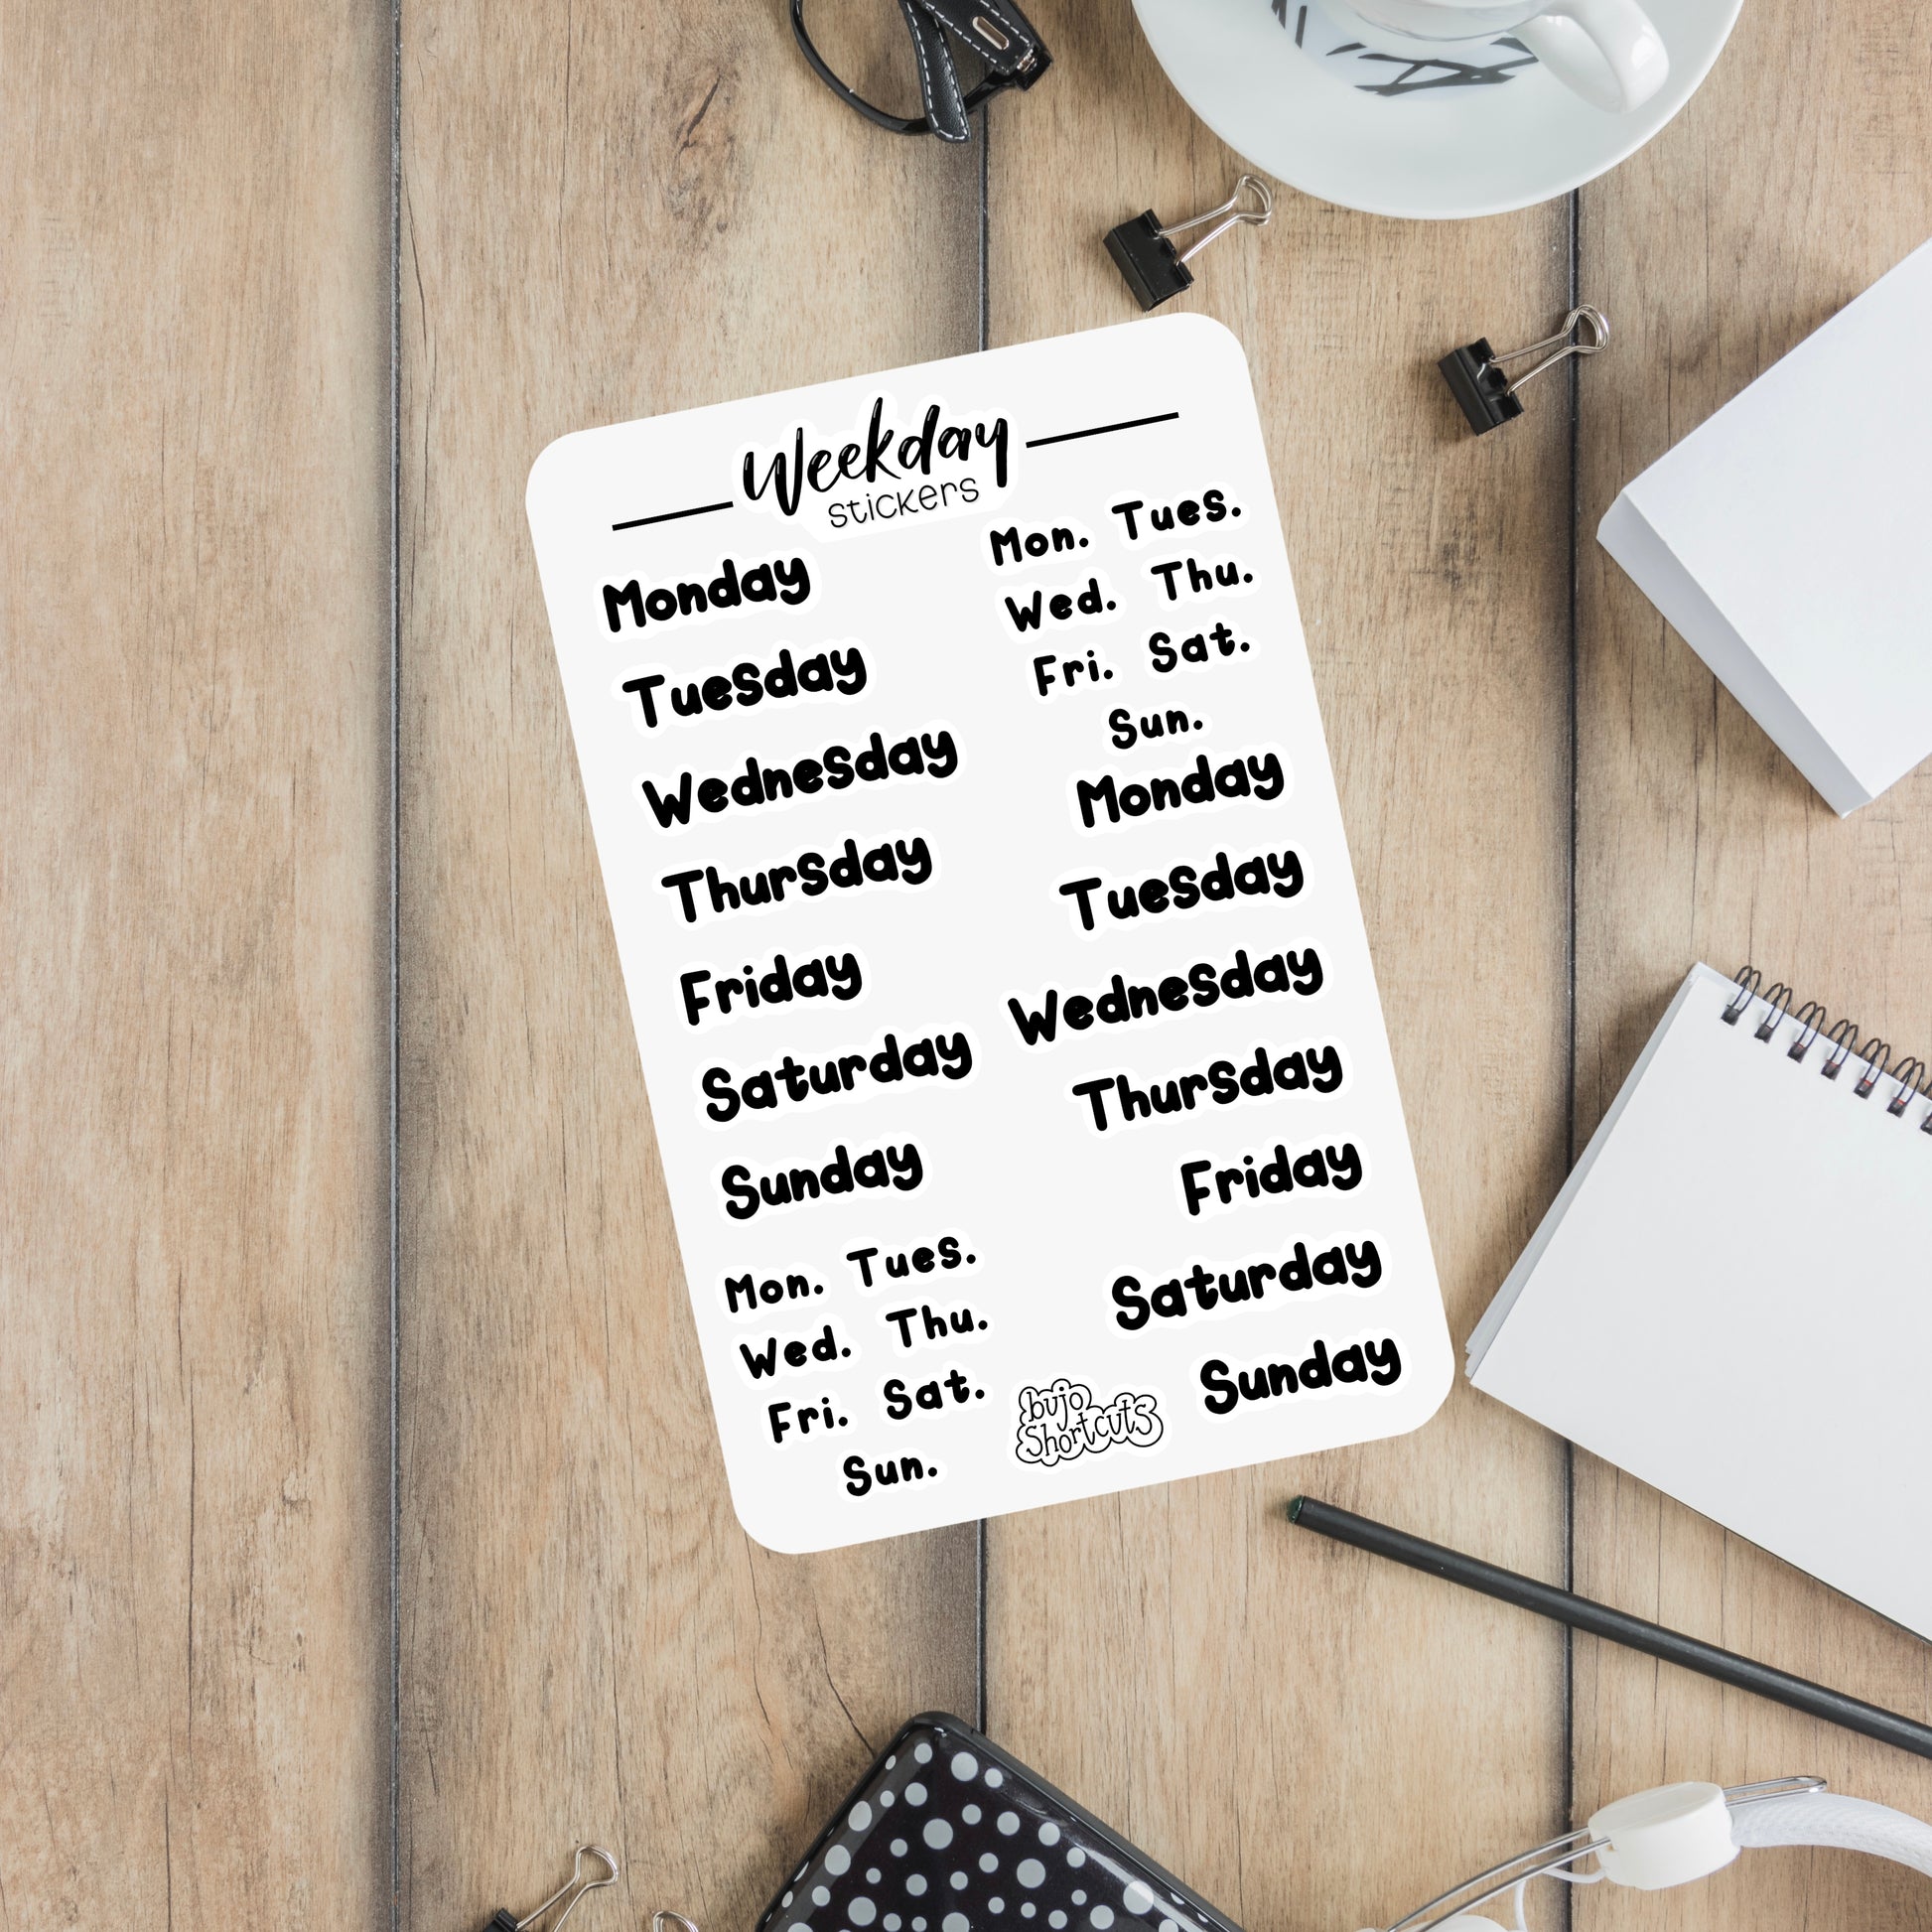 Weekday
stickers
Monday
Tuesday
Wednesday
Thursday
Friday
Saturday
Sunday
Mon. Tues.
Wed. Thu.
Fri. Sat.
Sun.
Mon. Tues.
Wed. Thu.
Fri. Sat.
Sun.
Monday
Tuesday
Wednesday
Thursday
Friday
Saturday
Sunday
bujo
Shortcuts